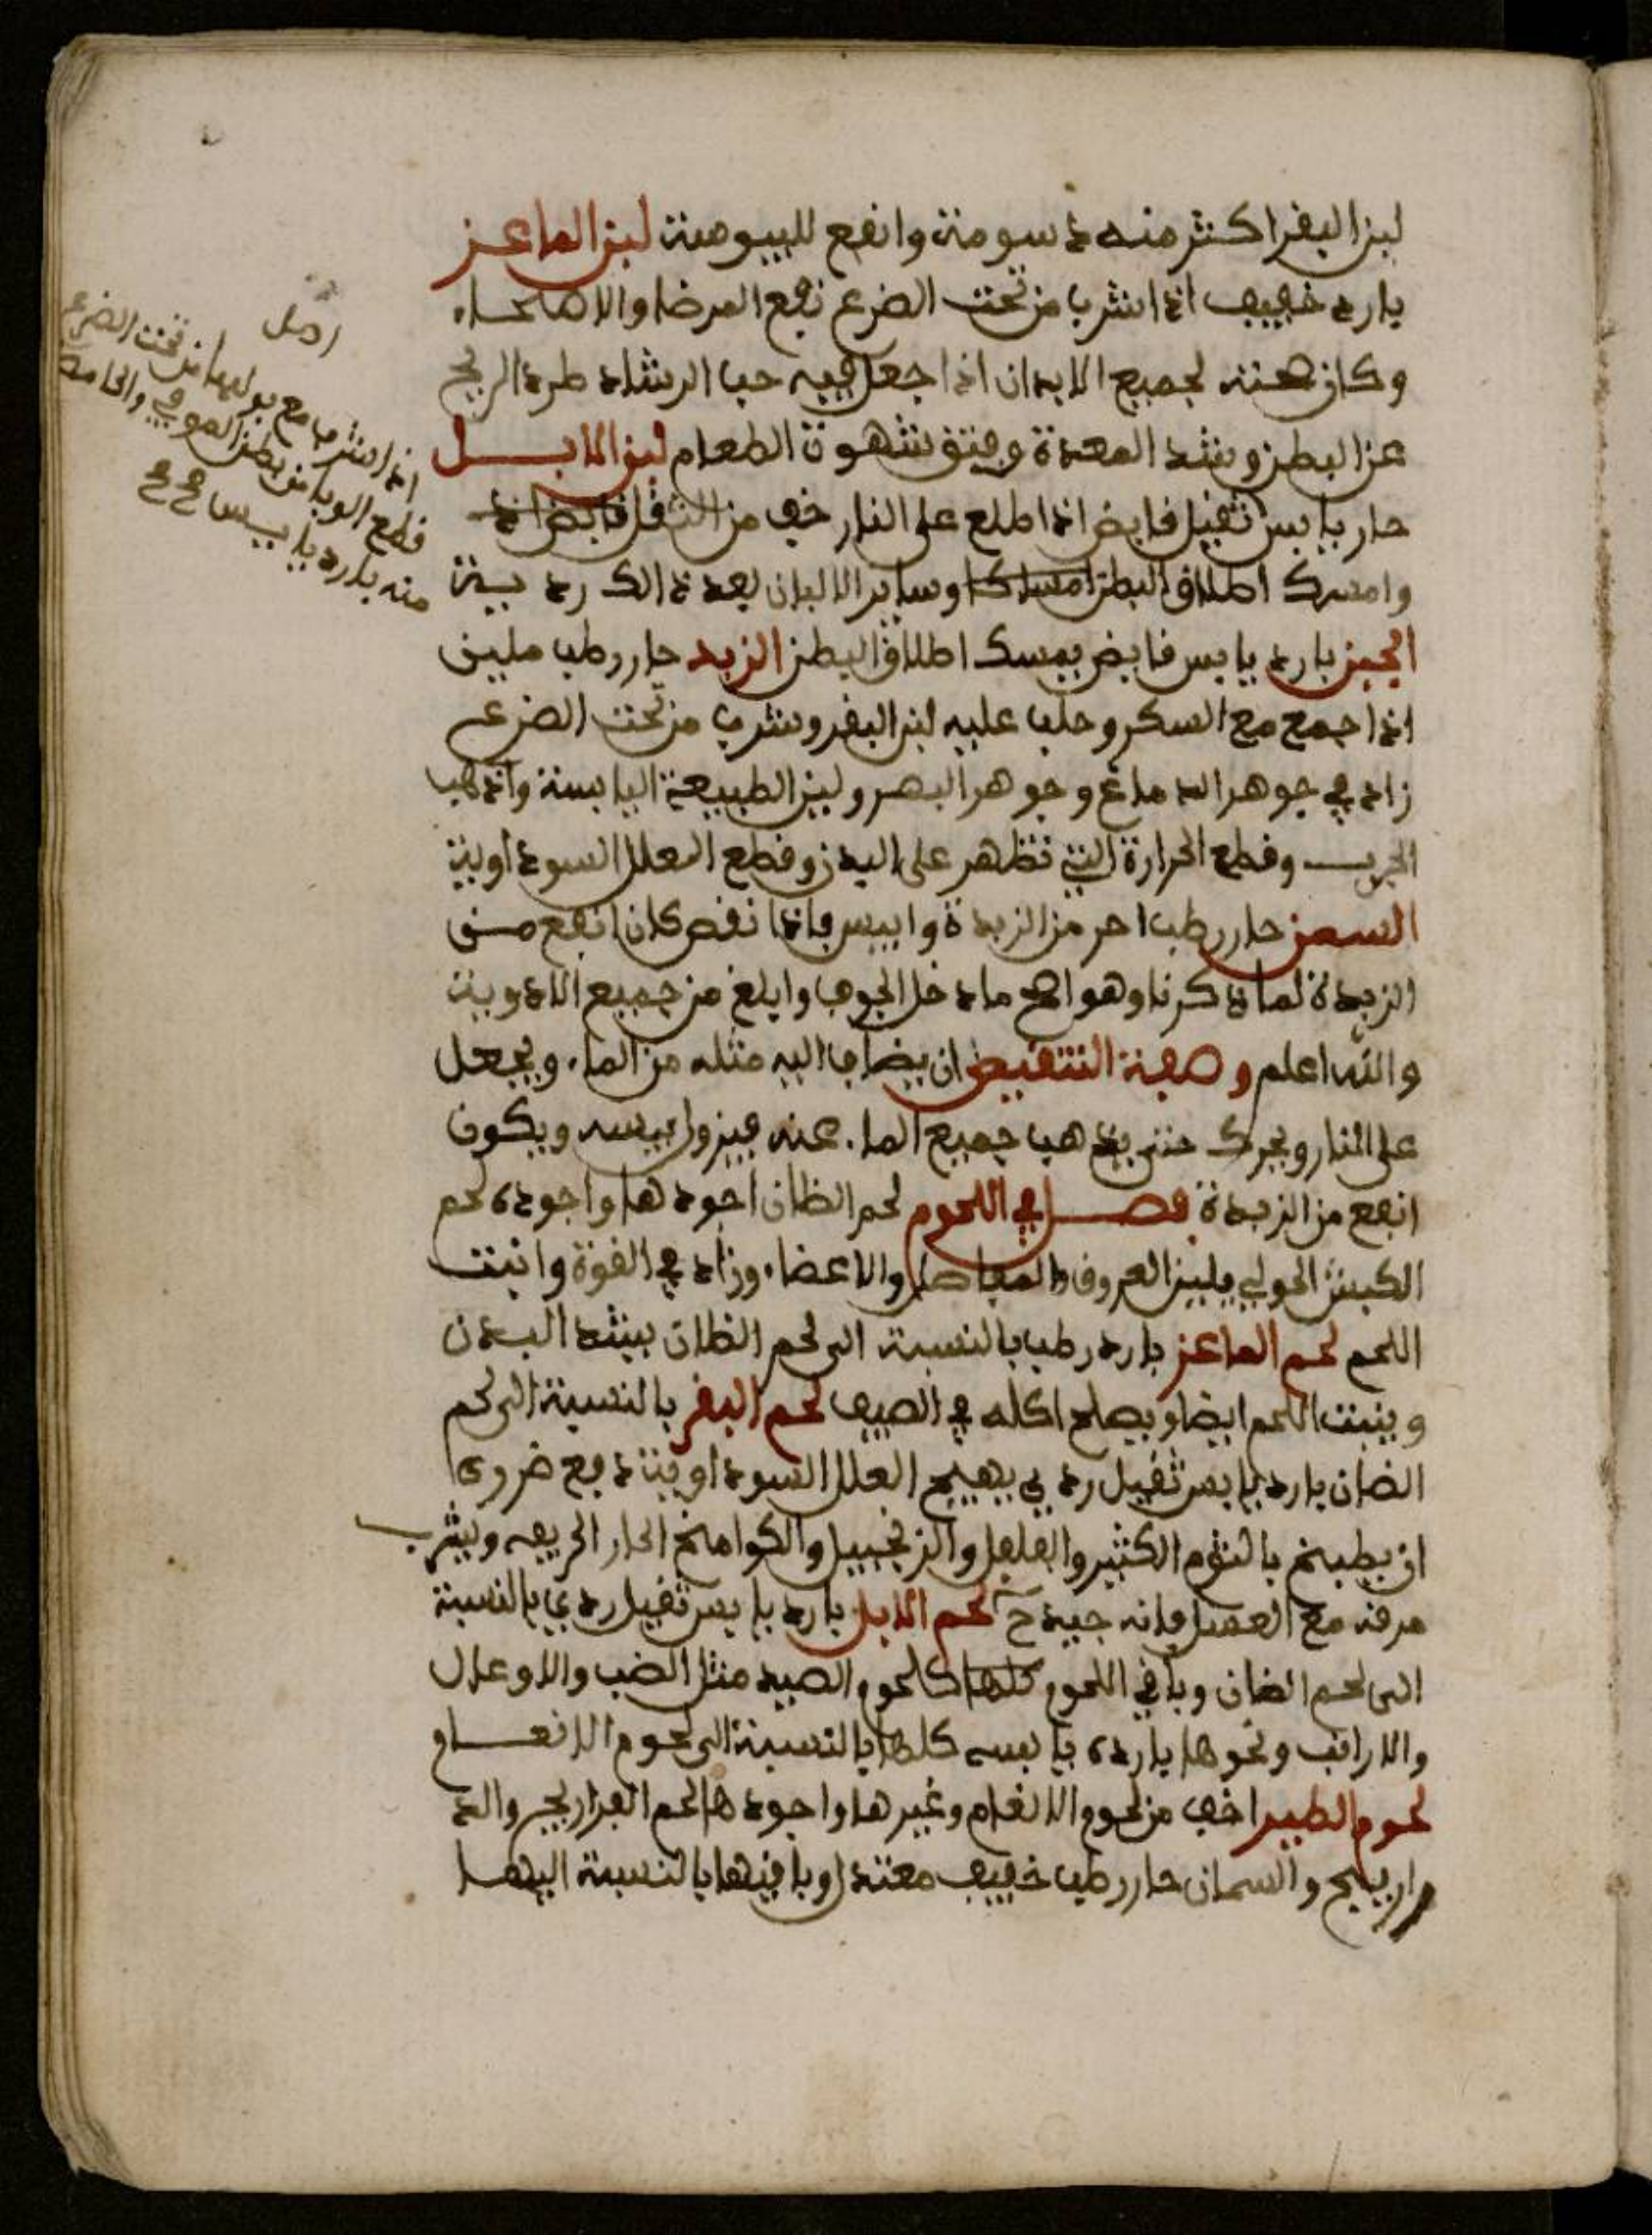 لبن البقر اكثر منه دسومة وانفع لليبوسة لبن الماعز
بارد خفيف اذا شرب من تحت الضرع نفع المرضا والاصحاء
وكان هـنـه لجميع الابدان اذا جعل فيه حب الرشاد طرد الريح
عن البطن وشد المعدة وفتق شهوة الطعام لبن الابل
حار يابس ثقيل قابض اذا طلع على النار خف من الثقل قابض اذا
وامسك اطلاق البطن امساكا وساير الالبان بعد ذالك ردية
الجبن بارد يابس قابض يمسك اطلاق البطن الزبد حار رطب ملين
اذا جمع مع السكر وحلب عليه لبن البقر وشرب من تحت الضرع
زاد في جوهر الدماغ وجوهر البصر ولين الطبيعة اليابسة واذهب
الجرب وقطع الحرارة التي تظهر على البدن وقطع العلل السوداوية
السمن حار رطب احر من الزبدة وايبس فاذا نقص كان انفع من
الزبدة لما ذكرنا وهو اصح ما دخل الجوف وابلغ من جميع الادوية
والله اعلم وصفة التنقيص ان يضاف اليه مثله من الماء ويجعل
على النار ويحرك حتى يذهب جميع الماء عنه فيزول يبسه ويكون
انفع من الزبدة فصل في اللحوم لحم الظان اجودها واجوده لحم
الكبش الحولي يلين العروق والمفاصل والاعضاء وزاد في القوة وانبت
اللحم لحم الماعز بارد رطب بالنسبة الى لحم الظان يشد البدن
وينبت اللحم ايضا ويصلح اكله في الصيف لحم البقر بالنسبة الى لحم
الضان بارد يابس ثقيل ردي يهيج العلل السوداوية دفع ضروره
ان يطبخ بالثوم الكثير والفلفل والزنجبيل والكوامخ الحار الحريفه ويشرب
مرقه مع العسل فانه جيد ح لحم الابل بارد يابس ثقيل ردي بالنسبة
الى لحم الضان وباقي اللحوم كلها كالحوم الصيد مثل الضب والاوعال
والارانب ونحوها بارده يابسه كلها بالنسبة الى لحوم الانعـام
لحوم الطير اخف من لحوم الانعام وغيرها واجودها لحم الفراريج والد
راريج والسمان حار رطب خفيف معتدل وباقيها بالنسبة اليها
اذا شرب مع بولها من تحت الضرع
قطع الوبا من بطن العوفي والحامض
منه بارد يابس صح صح